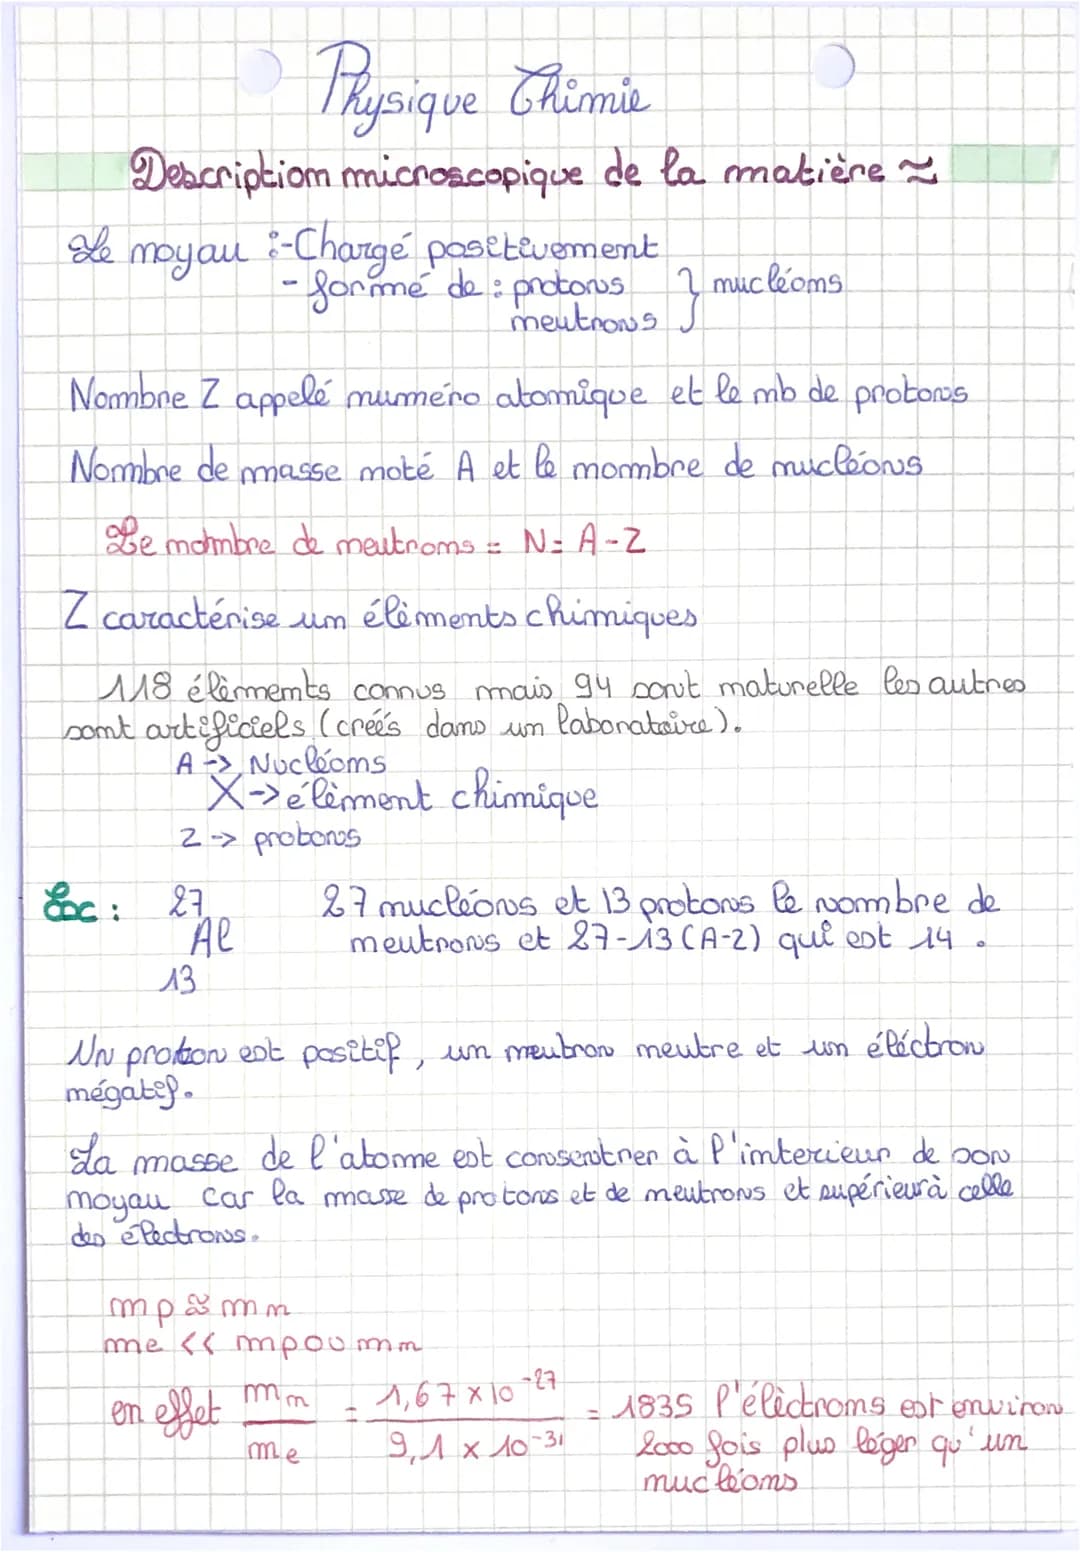 Physique Chimie
Description microscopique de la matière ~
Le noyau :-Chargé positivement
- formé de : protons } nucléons
neutrons
Nombre Z appelé numéro atomique et le nb de protons
Nombre de masse noté A et le nombre de nucléons
Le nombre de neutrons = N= A-Z
Z caractérise un éléments chimiques
118 éléments connus mais 94 sont naturelle les autres
sont artificiels (créés dans un laboratoire).
A -> Nucléons
X -> élément chimique
Z -> protons
Exc : 27 27 nucléons et 13 protons le nombre de
Al neutrons et 27-13 (A-Z) qui est 14 .
13
Un proton est positif , un neutron neutre et un éléctron
négatif.
La masse de l'atome est consentrer à l'interieur de son
noyau car la masse de protons et de neutrons et supérieur à celle
des électrons.
mp ≈ mn
me << mp ou mn
en effet mn / me = 1,67 × 10⁻²⁷ / 9,1 × 10⁻³¹ = 1835 l'éléctrons est environ
2000 fois plus léger qu'un
nucléons